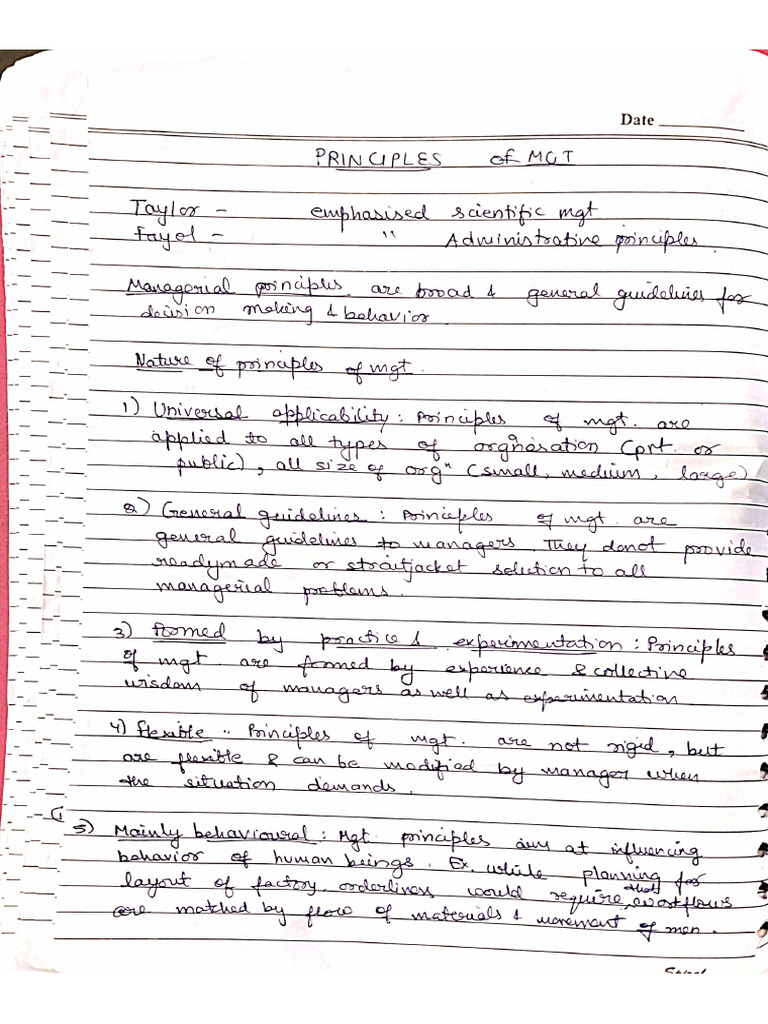 Date
PRINCIPLES of MGT
Taylor - emphasised scientific mgt
Fayol - " Administrative principles.
Managerial principles are broad & general guidelines for
decision making & behavior.
Nature of principles of mgt.
1) Universal applicability : Principles of mgt. are
applied to all types of orgnasation (prt. or
public), all size of orgn (small, medium, large)
2) General guidelines : Principles of mgt. are
general guidelines to managers. They donot provide
readymade or straitjacket solution to all
managerial problems.
3) Formed by practice & experimentation : Principles
of mgt are formed by experience & collective
wisdom of managers as well as experimentation
4) Flexible :- Principles of mgt. are not rigid, but
are flexible & can be modified by manager when
the situation demands.
5) Mainly behavioural : Mgt. principles aim at influencing
behavior of human beings. Ex. while planning for
layout of factory orderliness would require that workflows
are matched by flow of materials & movement of men.